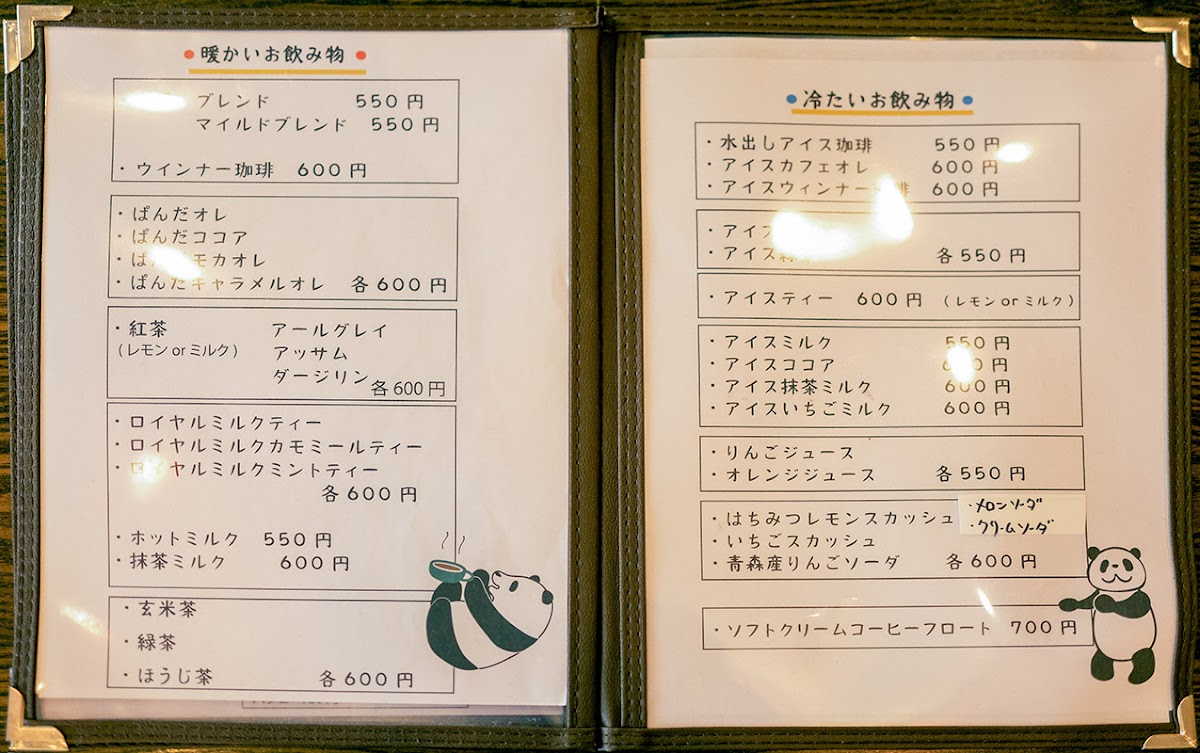 暖かいお飲み物
ブレンド 550円
マイルドブレンド 550円
・ウインナー珈琲 600円
・ぱんだオレ
・ぱんだココア
・ぱ モカオレ
・ぱんだキャラメルオレ 各600円
・紅茶 アールグレイ
(レモンorミルク) アッサム
ダージリン
各600円
・ロイヤルミルクティー
・ロイヤルミルクカモミールティー
・ロイヤルミルクミントティー
各600円
・ホットミルク 550円
・抹茶ミルク 600円
・玄米茶
・緑茶
・ほうじ茶 各600円
冷たいお飲み物
・水出しアイス珈琲 550円
・アイスカフェオレ 600円
・アイスウィンナー珈琲 600円
・アイス
・アイス 各550円
・アイスティー 600円 (レモンorミルク)
・アイスミルク 550円
・アイスココア 円
・アイス抹茶ミルク 600円
・アイスいちごミルク 600円
・りんごジュース
・オレンジジュース 各550円
・はちみつレモンスカッシュ
・いちごスカッシュ
・青森産りんごソーダ 各600円
・メロンソーダ
・クリームソーダ
・ソフトクリームコーヒーフロート 700円